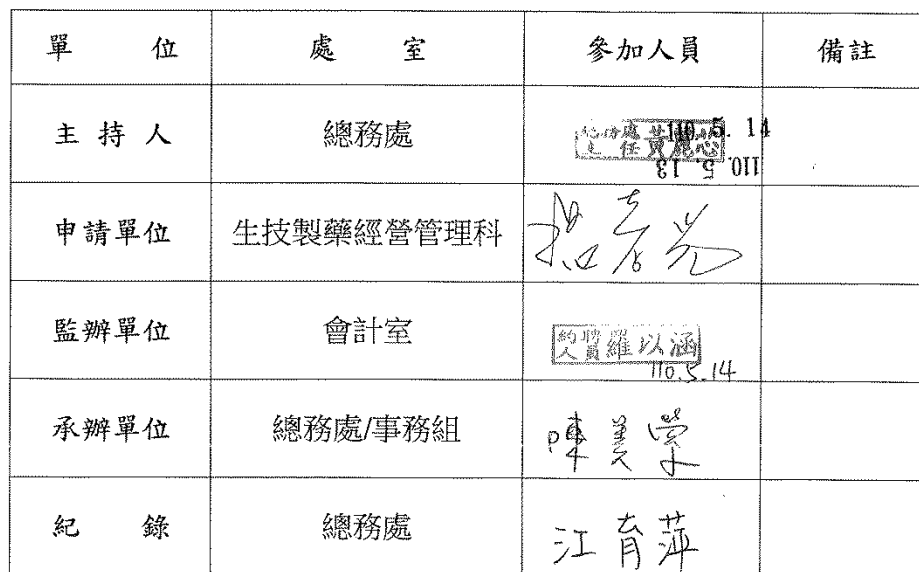 單 位 處 室 參加人員 備註
主 持 人 總務處 總務處主任黃麗心 110. 5. 14
110. 5. 13
申請單位 生技製藥經營管理科
監辦單位 會計室 約聘人員羅以涵
110.5.14
承辦單位 總務處/事務組 陳美榮
紀 錄 總務處 江育萍